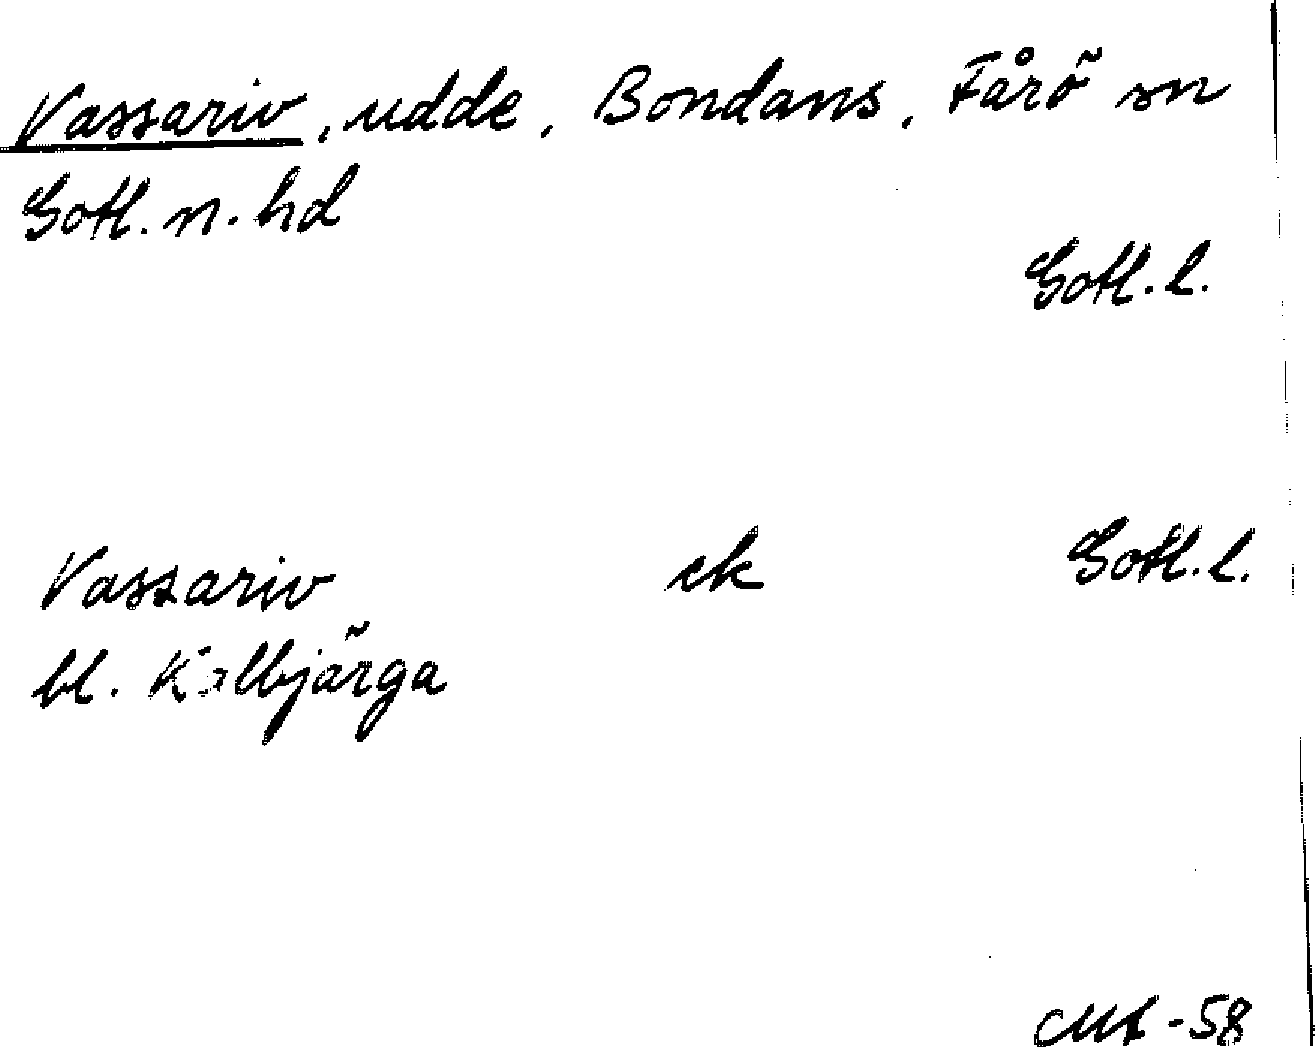 Vassariv, udde, Bondans, Fårö sn
Gotl. n. hd
Gotl. l.
Vassariv ek Gotl. l.
bl. Kalbjärga
-58